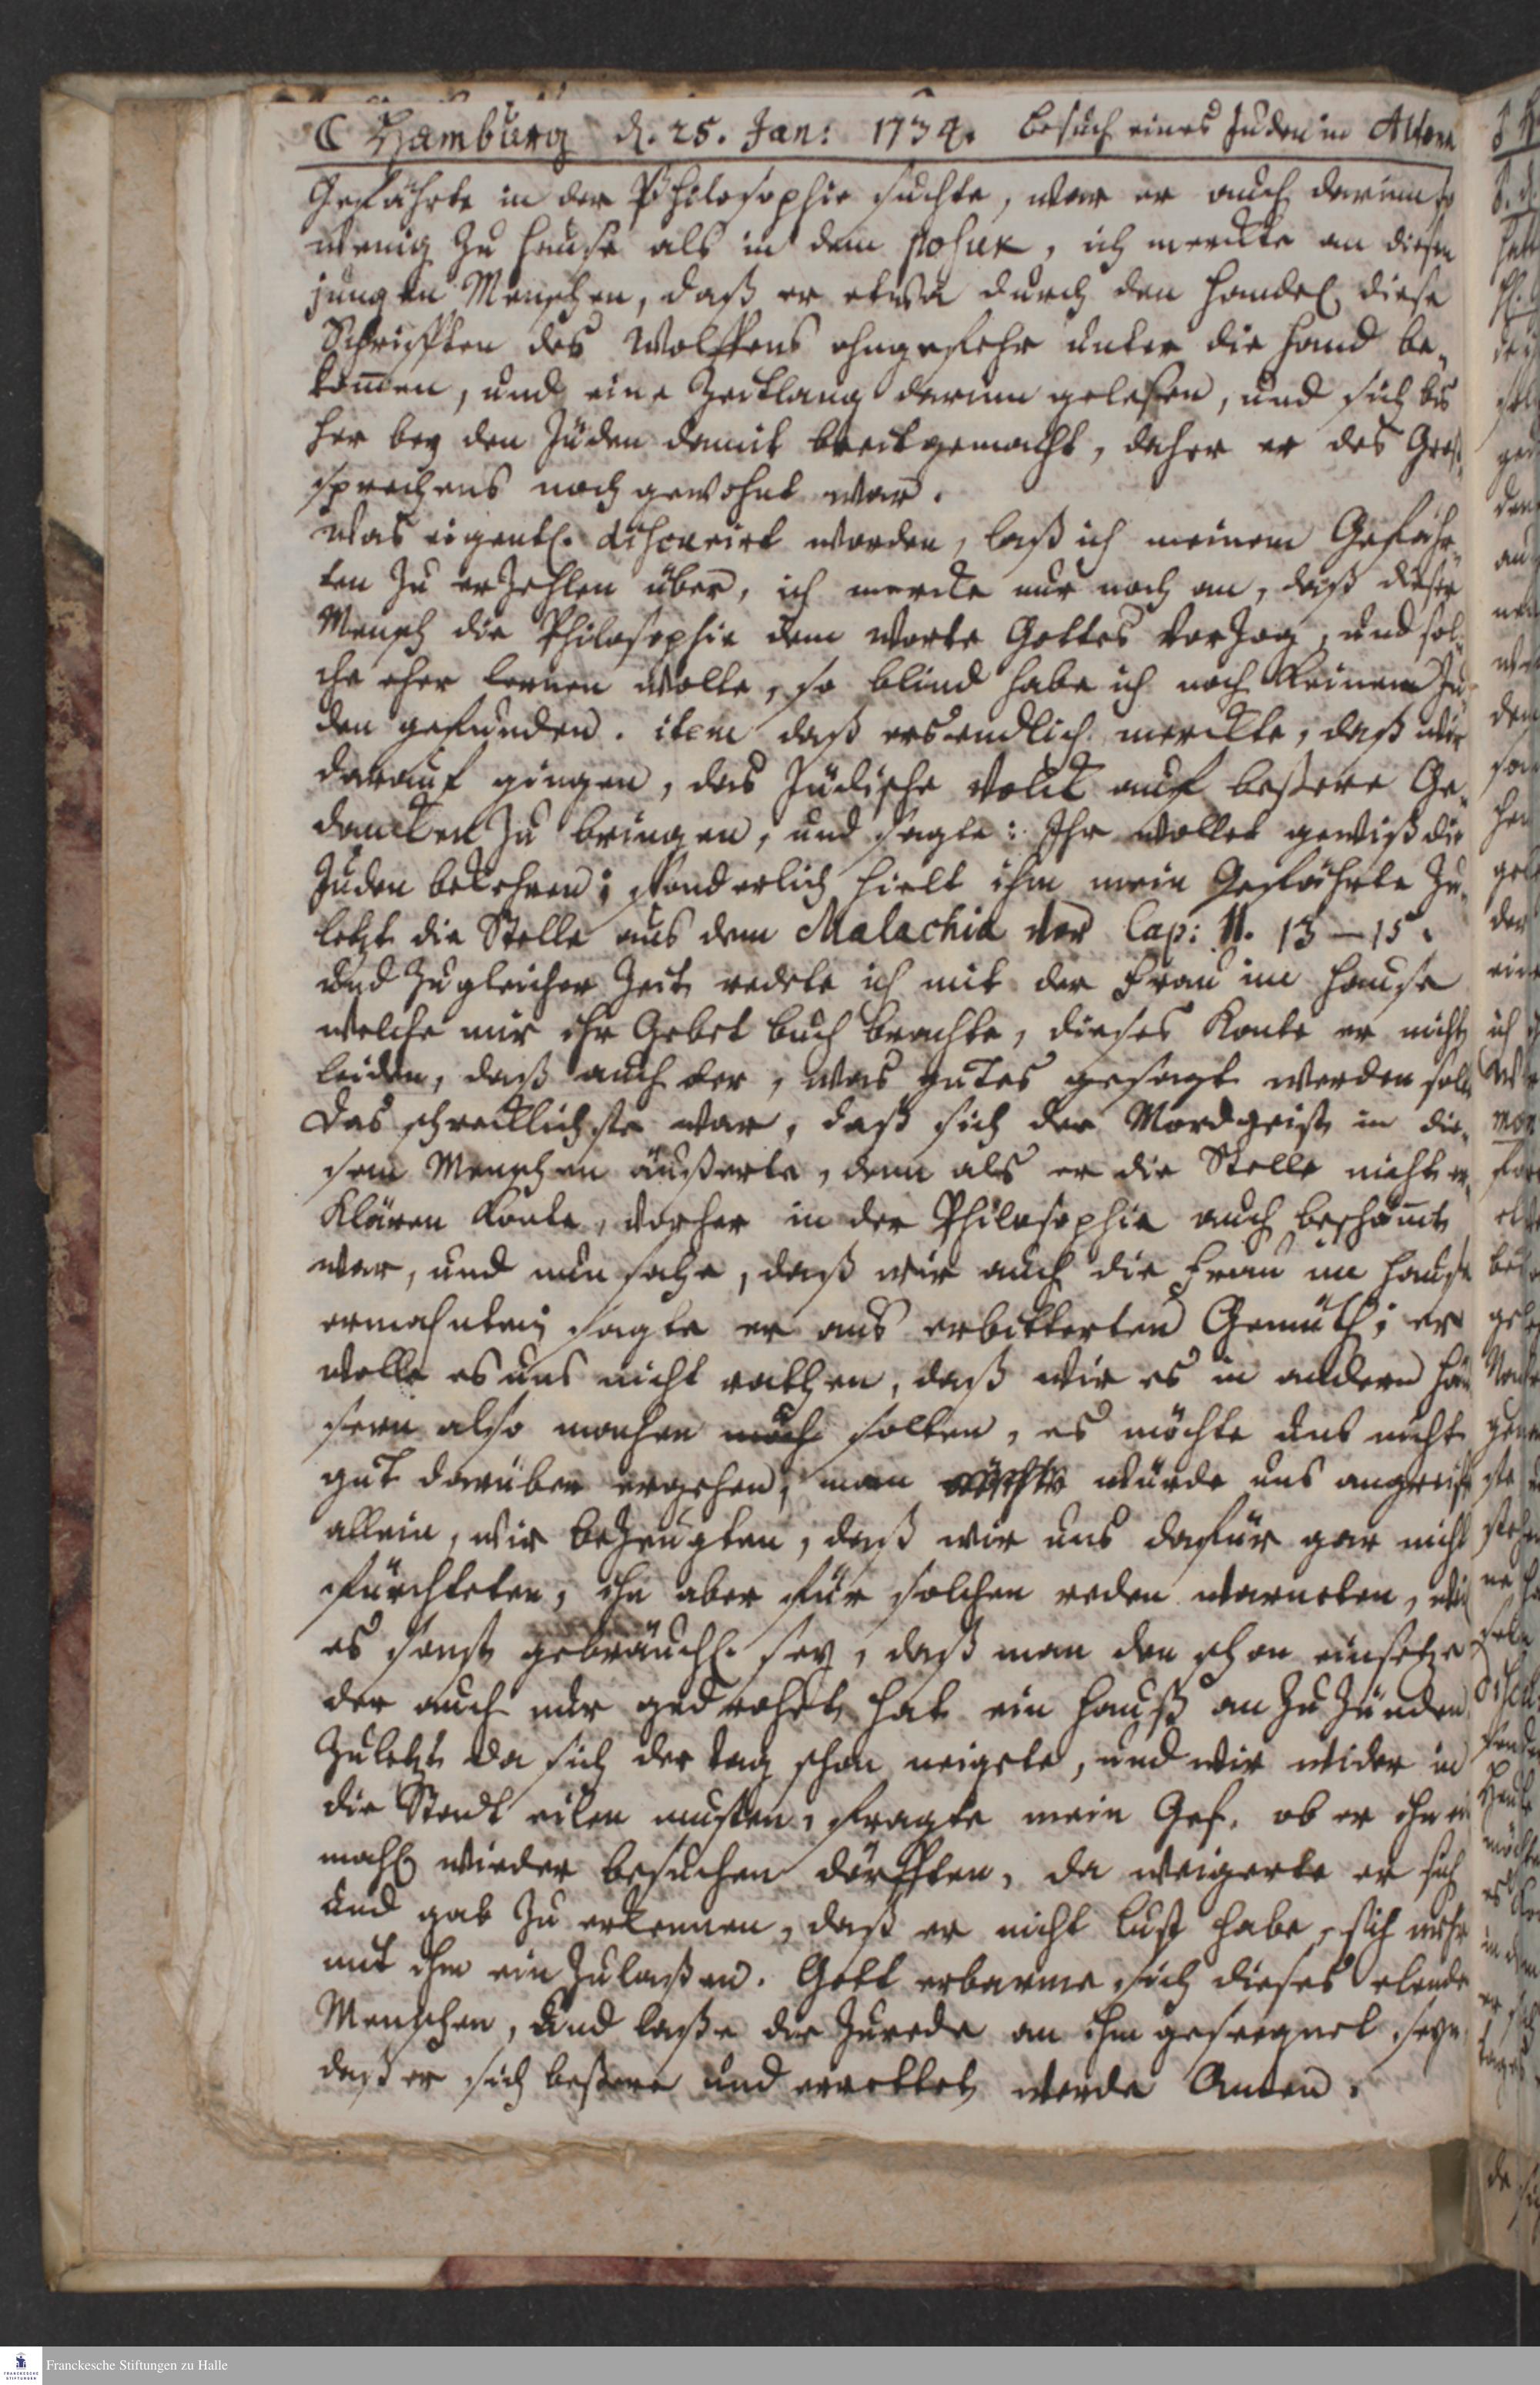 ☾ Hamburg d. 25. Jan: 1734. Besuch eines Juden in Altona
Gefährte in der Philosophie suchte, war er auch darinn so
wenig zu Hause als in dem posuk, ich merckte an diesem
jungen Menschen, daß er etwa durch den Handel diese
Schrifften des Wolffens ohngefehr unter die Hand be-
kommen, und eine Zeitlang darinn gelesen, und sich bis
her bey den Juden damit breitgemacht, daher er des Groß-
sprechens noch gewohnt war.
Was eigentl. discurirt worden, laß ich meinem Gefähr-
ten zu erzehlen über, ich mercke nur noch an, daß dieser
Mensch die Philosophie dem Worte Gottes vorzog, und sol-
che eher lernen wolle, so blind habe ich noch keinen Ju-
den gefunden. item daß er es endlich merckte, daß wir
darauf gingen, das Jüdische Volck auf bessere Ge-
dancken zu bringen, und sagte: Ihr wollet gewiß die
Juden bekehren; sonderlich hielt ihm mein Gefährte zu-
letzt die Stelle aus dem Malachia vor Cap: II. 13-15.
und zu gleicher Zeit redete ich mit der Frau im Hause
welche mir ihr Gebet buch brachte, dieses konte er nicht
leiden, daß auch der, was gutes gesagt werden solte
Das schrecklichste war, daß sich der Mordgeist in die-
sem Menschen äußerte, denn als er die Stelle nicht er-
klären konte, vorher in der Philosophie auch beschämt
war, und nun sahe, daß wir auch die Frau im Hause
ermahnten; sagte er aus erbitterten Gemüth; er
wolle es uns nicht rathen, daß wir es in andern Häu
sern also machen solten, es möchte uns nicht
gut darüber ergehen, man würde uns angreifen
allein, wir bezeugten, daß wir uns dafür gar nicht
fürchteten, ihn aber für solchen reden warneten, wie
es sonst gebräuchl. sey, daß man den schon einsetze
der auch nur gedrohet hat ein Hauß an zu zünden
Zuletzt da sich der tag schon neigete, und wir wider in
die Stadt eilen musten, fragte mein Gef. ob er ihn ein
mahl wieder besuchen dörfften, da weigerte er sich
und gab zu erkennen, daß er nicht lust habe, sich mehr
mit ihm ein zulaßen. Gott erbarme sich dieses elenden
Menschen, und laße die Zurede an ihm geseegnet seyn
daß er sich bessere und errettet werde Amen.
Franckesche Stiftungen zu Halle